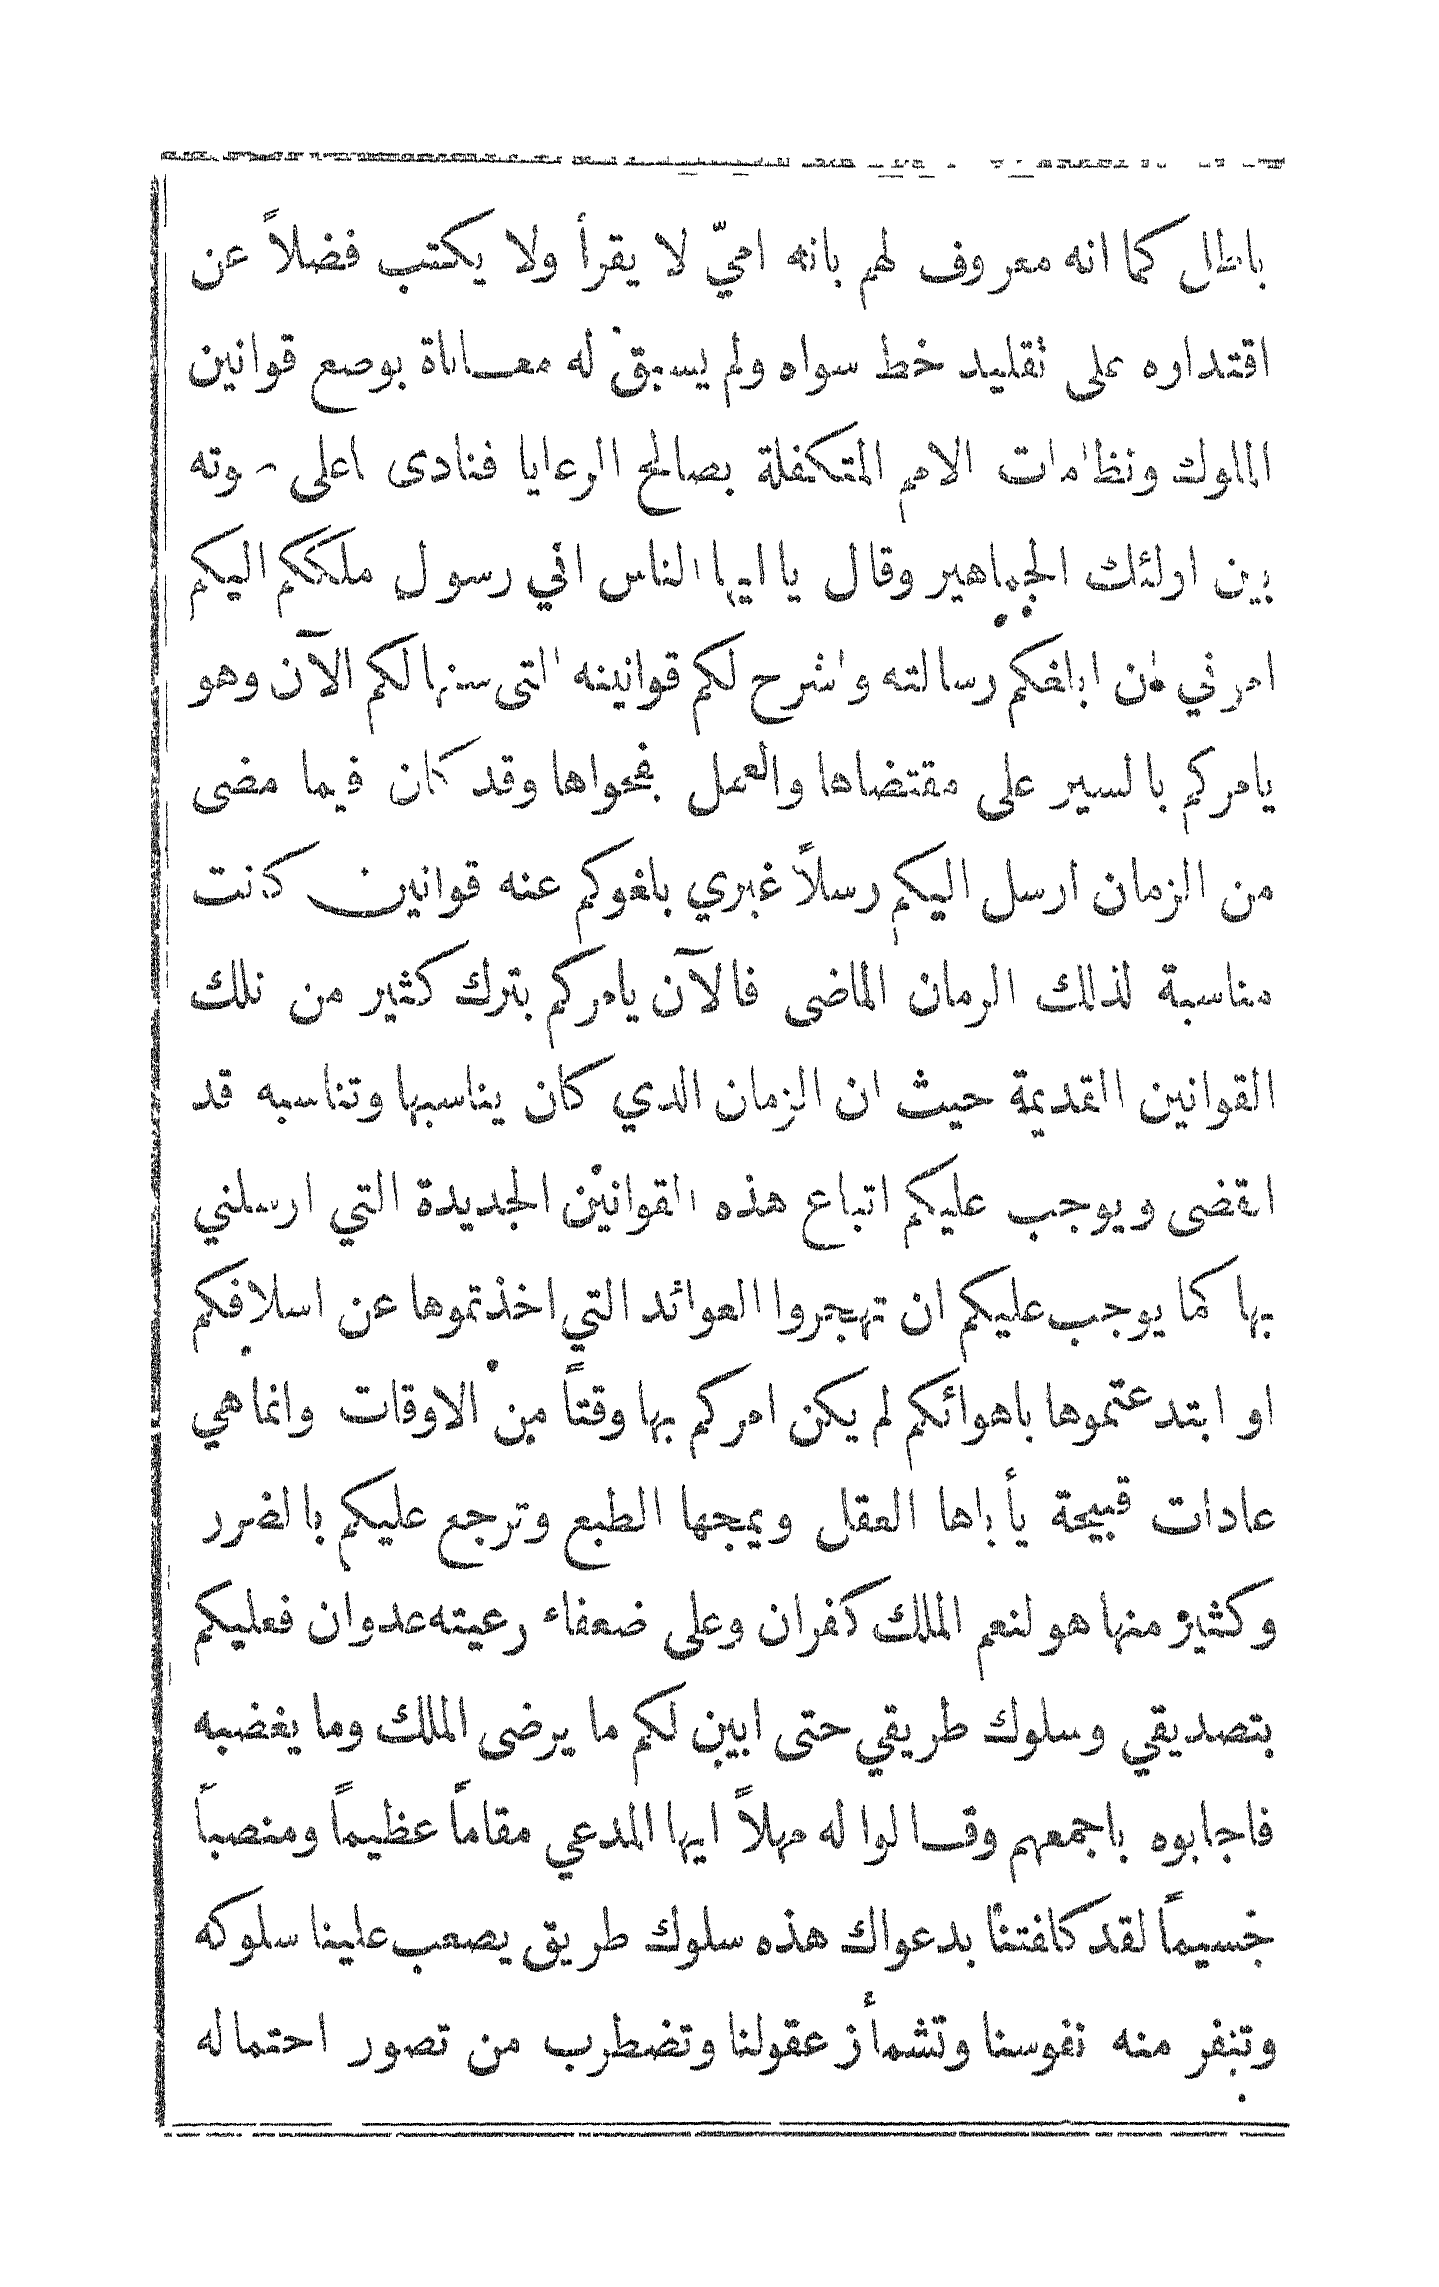 باطل كما انه معروف لهم بانه اميّ لا يقرأ ولا يكتب فضلاً عن
اقتداره على تقليد خط سواه ولم يسبق له معاناة بوضع قوانين
الملوك ونظامات الامم المتكفلة بصالح الرعايا فنادى اعلى صوته
بين اولئك الجماهير وقال يا ايها الناس اني رسول ملككم اليكم
امرني ان ابلغكم رسالته واشرح لكم قوانينه التى سنها لكم الآن وهو
يامركم بالسير على مقتضاها والعمل بفحواها وقد كان فيما مضى
من الزمان ارسل اليكم رسلاً غيري بلغوكم عنه قوانين كانت
مناسبة لذلك الزمان الماضى فالآن يامركم بترك كثير من تلك
القوانين القديمة حيث ان الزمان الذي كان يناسبها وتناسبه قد
انقضى ويوجب عليكم اتباع هذه القوانين الجديدة التي ارسلني
بها كما يوجب عليكم ان تهجروا العوائد التي اخذتموها عن اسلافكم
او ابتدعتموها باهوائكم لم يكن امركم بها وقتاً من الاوقات وانما هي
عادات قبيحة يأباها العقل ويمجها الطبع وترجع عليكم بالضرر
وكثير منها هو لنعم الملك كفران وعلى ضعفاء رعيته عدوان فعليكم
بتصديقي وسلوك طريقي حتى ابين لكم ما يرضى الملك وما يغضبه
فاجابوه باجمعهم وقالوا له مهلاً ايها المدعي مقاماً عظيماً ومنصباً
جسيماً لقد كلفتنا بدعواك هذه سلوك طريق يصعب علينا سلوكه
وتنفر منه نفوسنا وتشمأز عقولنا وتضطرب من تصور احتماله